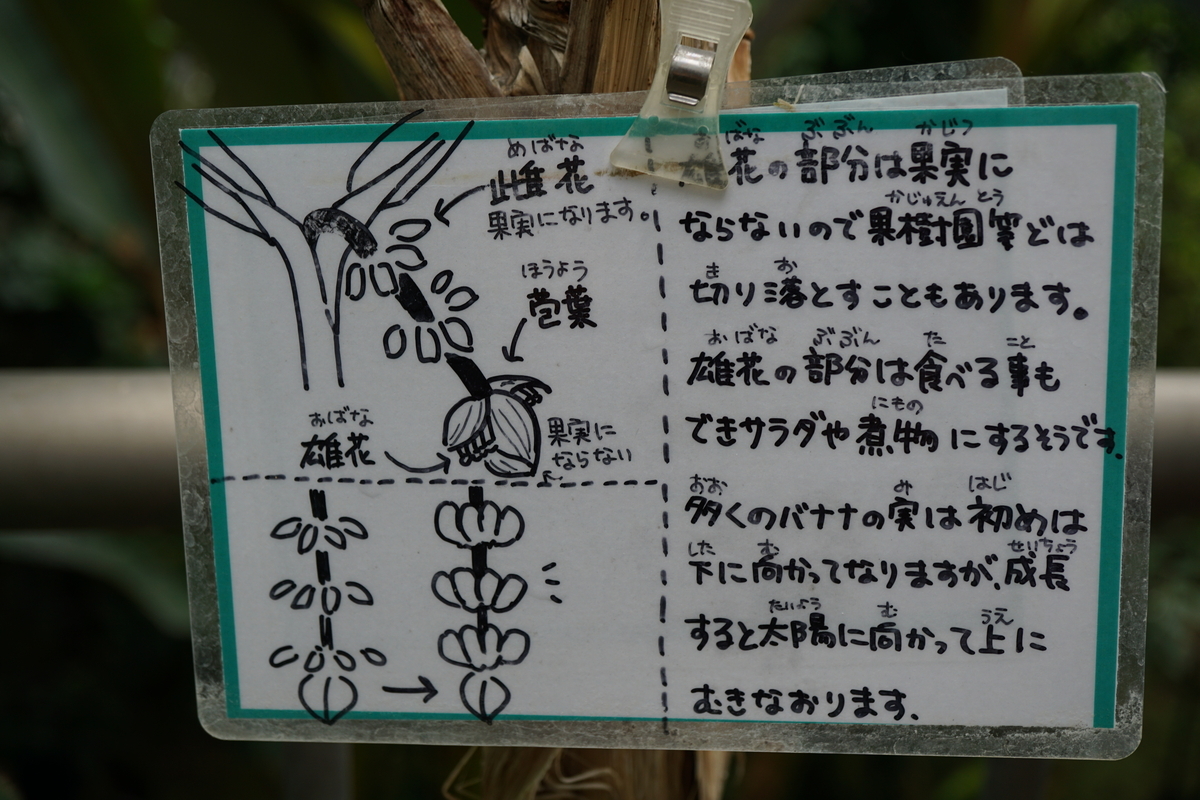 めばな
雌花
果実になります。
ほうよう
苞葉
おばな
雄花
果実に
ならない
ばな ぶぶん かじつ
花の部分は果実に
かじゅえん とう
ならないので果樹園等どは
ま お
切り落とすこともあります。
おばな ぶぶん た こと
雄花の部分は食べる事も
にもの
できサラダや煮物にするそうです.
おお み はじ
多くのバナナの実は初めは
した む せいちょう
下に向かってなりますが、成長
たいよう む うえ
すると太陽に向かって上に
むきなおります.